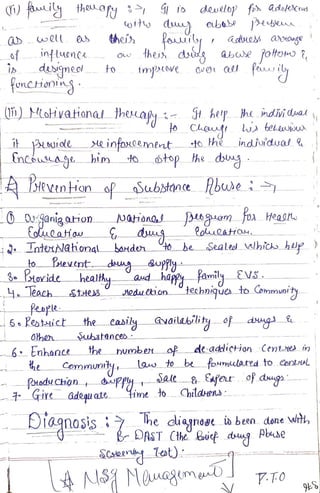 (ii) family therapy :→ It is develop for adolescens
with drug abose person
as well as their family, adress arrange
of influence on their drug abuse pattern &
is designed to improve over all family
functioning.
(iii) Motivational therapy :- It help the individual
to Change his behaviour
it provide reinforcement to the individual &
Encourage him to stop the drug.
Prevention of Substance Abuse :→
① Organization National program for Health
Education & drug Education.
2. InterNational border to be Sealed which help
to Prevent drug supply.
3. Provide healthy and happy family EVS.
4. Teach stress reduction techniques to Community
People.
5. Restrict the easily availability of drugs &
other substances.
6. Enhance the number of de-addiction Centres in
the Community, law to be formulated to control
Production, supply, Sale & Export of drugs.
7. Give adequate time to Childrens.
Diagnosis :→ The diagnose is been done with
B- DAST (the Brief drug Abuse
Screening Test) :
[# NSg Management]
P.T.O